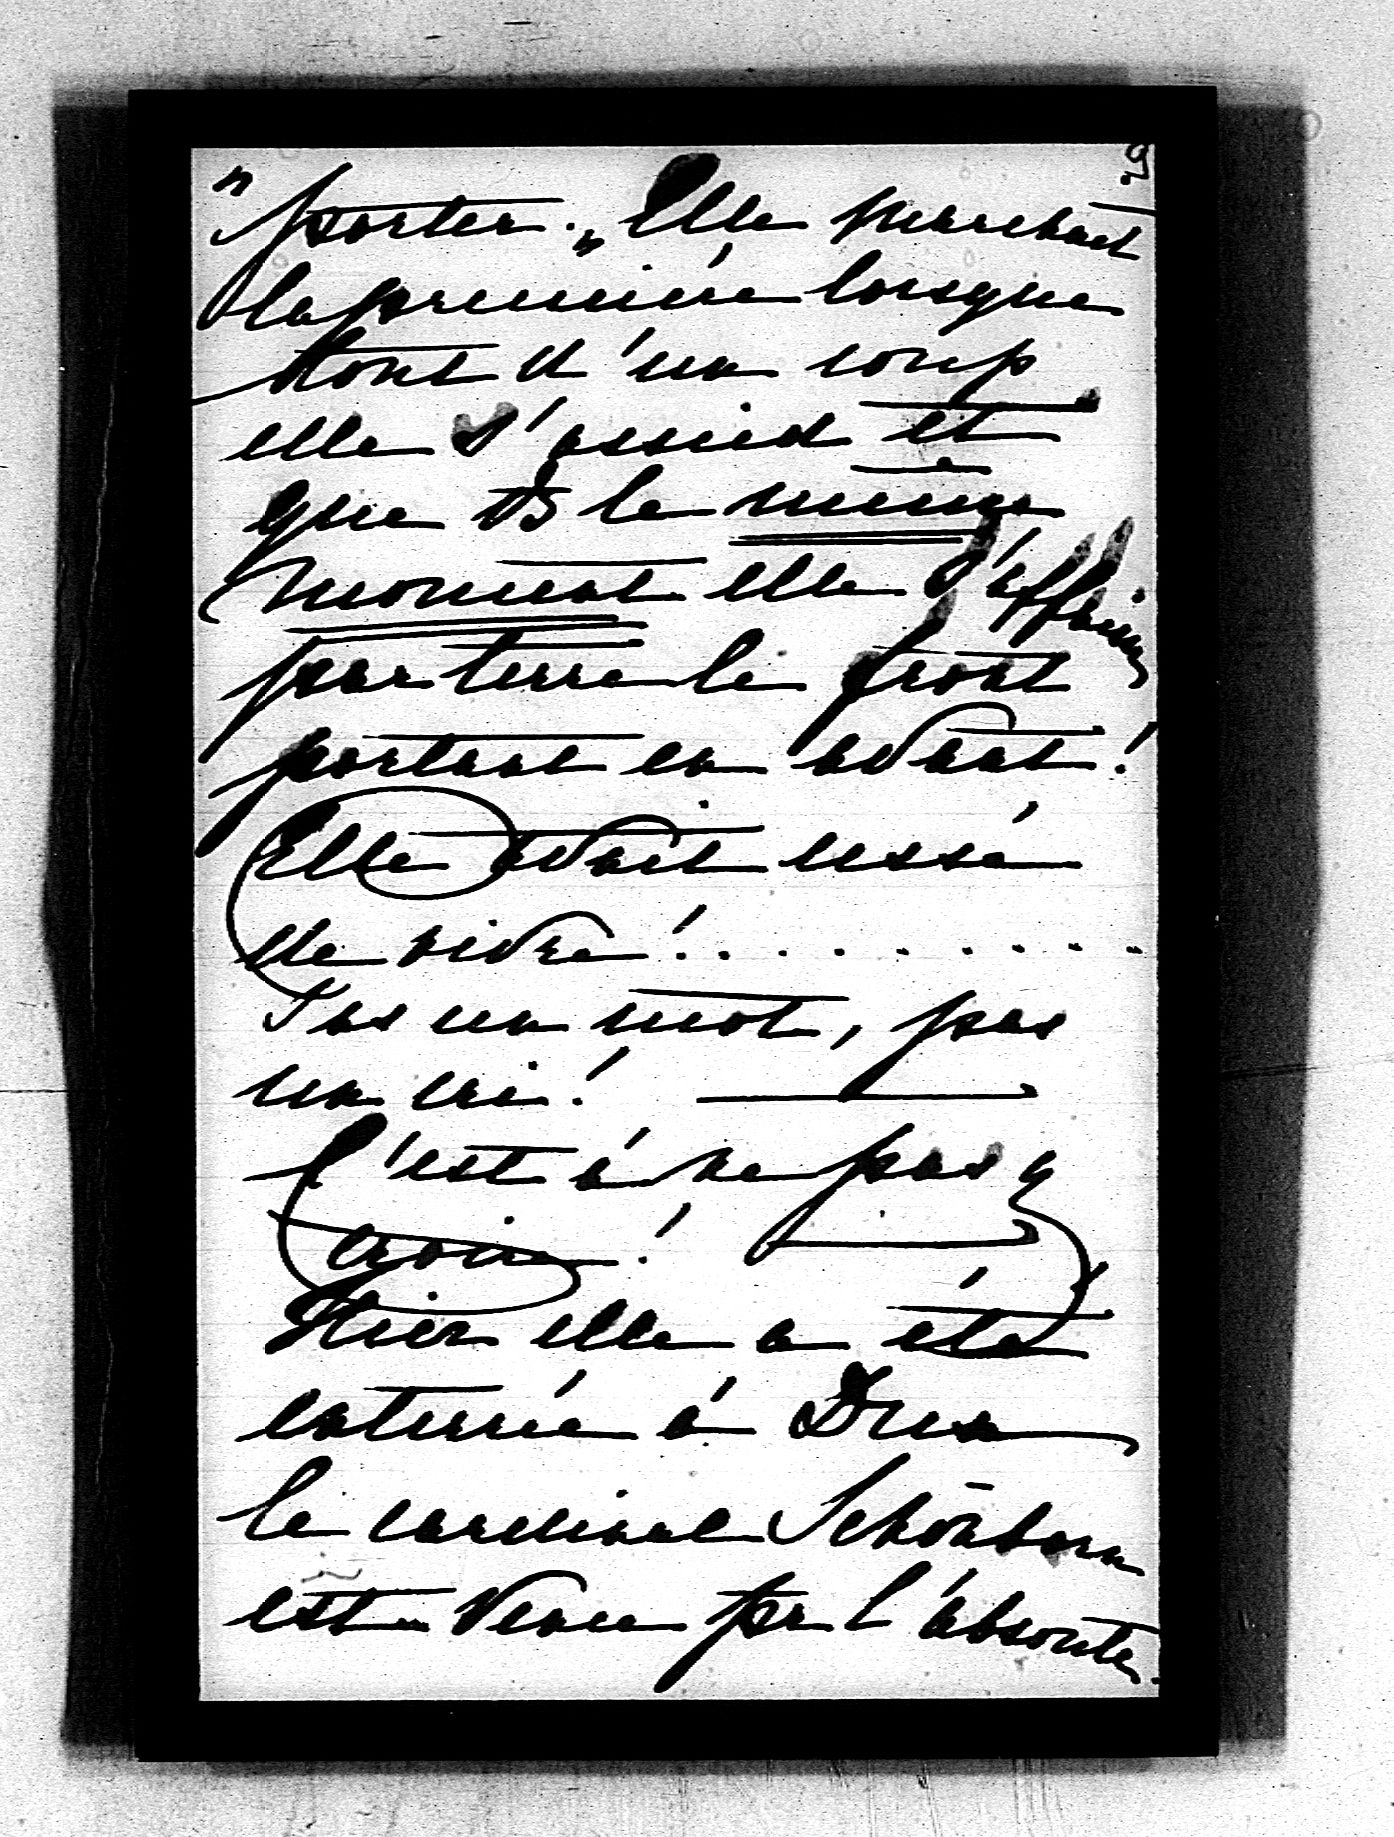 9
"porter." Elle marchait
la première lorsque
tout d'un coup
elle s'assied et
que ds le même
moment elle s'affaisse
par terre le front
portant en avant!
Elle avait cessé
de vivre! . . . . . . . . .
Pas un mot, pas
un cri! —
C'est à ne pas y
croire! —
Hier elle a été
enterrée à Dux
le cardinal Schönborn
est venu pr l'absoute.